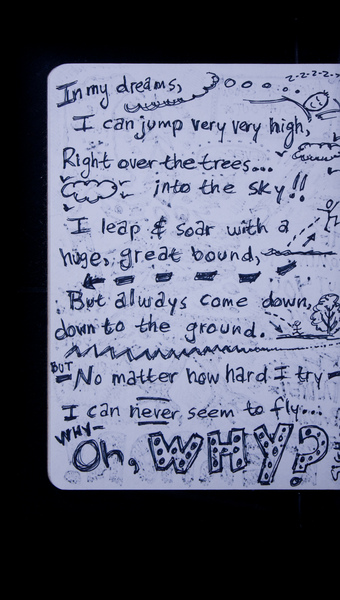 In my dreams,
z-z-z-z-z
I can jump very very high,
Right over the trees...
into the sky!!
I leap & soar with a
huge, great bound,
But always come down,
down to the ground.
BUT
- No matter how hard I try -
I can never seem to fly...
WHY-
Oh, WHY?